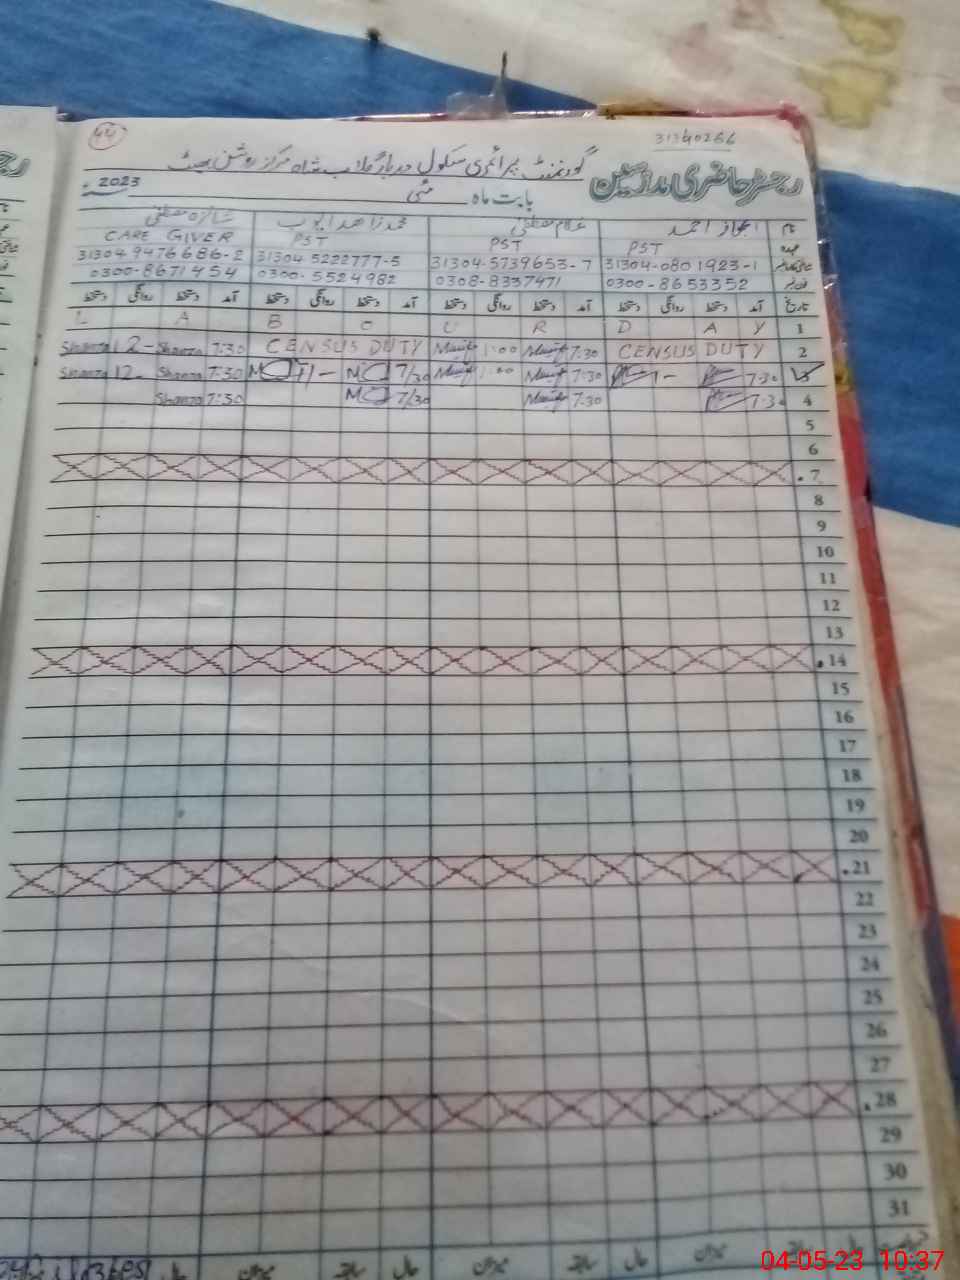 44
31340266
رجسٹر حاضری مدرسین گورنمنٹ پرائمری سکول دربار گلاب شاہ مرکز روشن بھیٹ
بابت ماہ مئی 2023
نام اعجاز احمد غلام مصطفیٰ محمد زاہد ایوب شانزہ مصطفیٰ
عہدہ PST PST PST CARE GIVER
31304-0801923-1 31304-5739653-7 31304-5222777-5 31304-9476686-2
0300-8653352 0308-8337471 0300-5524982 0300-8671454
تاریخ آمد دستخط روانگی دستخط آمد دستخط روانگی دستخط آمد دستخط روانگی دستخط آمد دستخط روانگی دستخط
L A B O U R D A Y 1
Shanza 12- Shanza 7:30 CENSUS DUTY 1:00 7:30 CENSUS DUTY 2
Shanza 12- Shanza 7:30 11- 7/30 1:00 7:30 1- 7:30 3
Shanza 7:30 7/30 7:30 7:30 4
5
6
7
8
9
10
11
12
13
14
15
16
17
18
19
20
21
22
23
24
25
26
27
28
29
30
31
حال سابقہ میزان حال سابقہ میزان حال سابقہ میزان حال
04-05-23 10:37